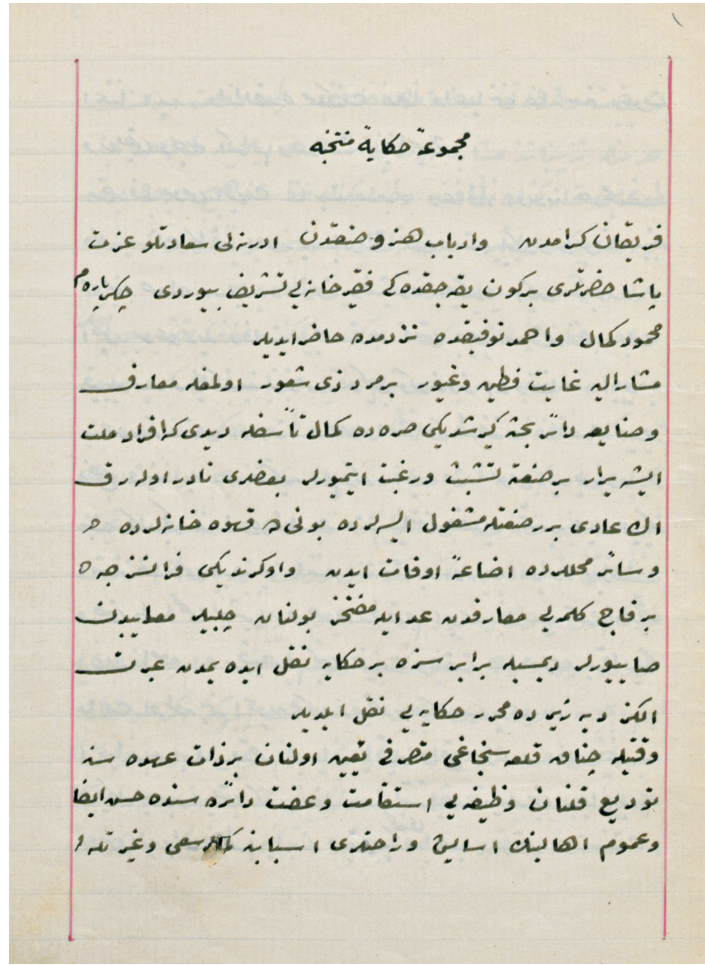 مجموعهٔ حكايهٔ منتخبه
فريقان كرامدن وارباب هنر و صنعتدن ادرنه لى سعادتلو عزت
پاشا حضرتلرى بركون يقه جقده كى فقيرخانه يى تشريف بيوردى جكرپاره م
محمود كمال و احمد توفيقده نزدمده حاضر ايديلر
مشاراليه غايت فطين وغيور بر مرد ذى شعور اولمغله معارف
وصنايعه دائر بحثه كيرشديكى صره ده كمال تأسفله ديدى كه افراد ملت
ايشه يرار بر صنعته تشبث و رغبت ايتميورلر بعضدى نادر اوله رق
اك عادى بر صنعتله مشغول ايسه لرده بونى ده قهوه خانه لرده
وسائر محللرده اضاعهٔ اوقات ايدن واوكرنديكى فرانسزجه
بر قاچ كلمه يى معارفدن عد ايله مفتخر بولنان چلبيلر معايبدن
صاييورلر ديمسيله برابر سزه بر حكايه نقل ايده يمدن عبرت
الكز ديه زيرده محرر حكايه يى نقل ايلديلر
وقتيله چناق قلعه سنجاغى متصرفى تعيين اولنان بر ذات عهده سنه
توديع قلنان وظيفه يى استقامت وعفت دائره سنده حسن ايفا
وعموم اهالينك اسايش وراحتلرى اسبابنه سعى وغيرتله